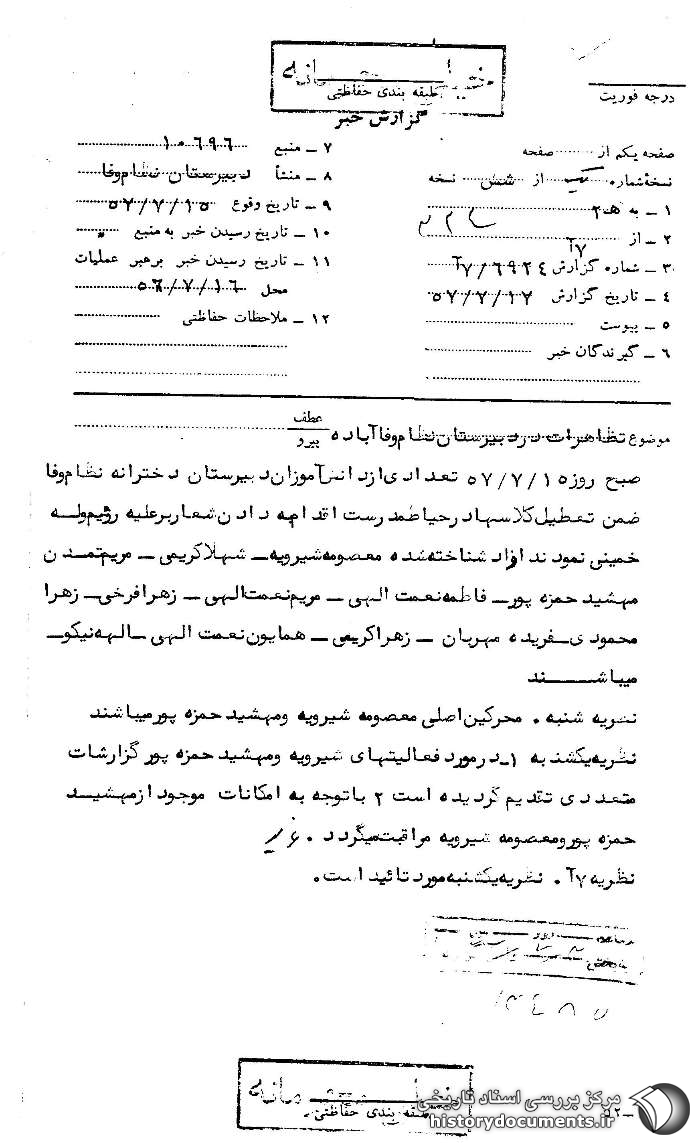 طبقه بندی حفاظتی
گزارش خبر
درجه فوریت
صفحه یکم از صفحه
نسخه شماره یک از شش نسخه
۱ ـ به ۲هـ
۲ ـ از ۷آ
۳ ـ شماره گزارش ۷/۶۹۲۴آ
۴ ـ تاریخ گزارش ۵۷/۷/۱۷
۵ ـ پیوست
۶ ـ گیرندگان خبر
۷ ـ منبع ۱۰۶۹۶
۸ ـ منشأ دبیرستان نظام وفا
۹ ـ تاریخ وقوع ۵۷/۷/۱۵
۱۰ ـ تاریخ رسیدن خبر به منبع
۱۱ ـ تاریخ رسیدن خبر برهبر عملیات
محل ۵۶/۷/۱۶
۱۲ ـ ملاحظات حفاظتی
موضوع تظاهرات در دبیرستان نظام وفا آباده
عطف
پیرو
صبح روز ۵۷/۷/۱۵ تعدادی از دانش آموزان دبیرستان دخترانه نظام وفا
ضمن تعطیل کلاسها در حیاط مدرسه اقدام به دادن شعار بر علیه رژیم وله
خمینی نمودند افراد شناخته شده معصومه شیرویه ـ شهلا کریمی ـ مریم تمدن
مهشید حمزه پور ـ فاطمه نعمت الهی ـ مریم نعمت الهی ـ زهرا فرخی ـ زهرا
محمودی ـ فریده مهربان ـ زهرا کریمی ـ همایون نعمت الهی ـ الهه نیکو ـ
میباشــــند
نظریه شنبه . محرکین اصلی معصومه شیرویه ومهشید حمزه پور میباشند
نظریه یکشنبه ۱ـ در مورد فعالیتهای شیرویه ومهشید حمزه پور گزارشات
متعددی تقدیم گردیده است ۲ با توجه به امکانات موجود از مهشیـد
حمزه پور ومعصومه شیرویه مراقبت میگردد .
نظریه ۷آ. نظریه یکشنبه مورد تائید است.
طبقه بندی حفاظتی
مرکز بررسی اسناد تاریخی
historydocuments.ir